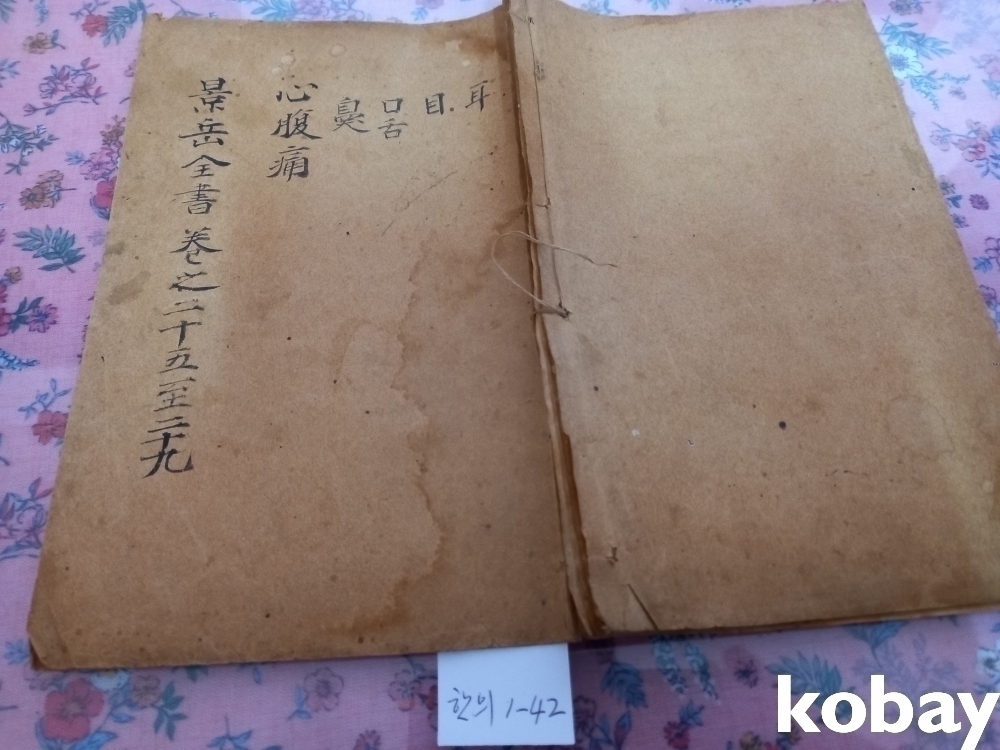 耳
目
口舌
鼻
心腹痛
景岳全書 卷之二十五至二十九
한의 1-42
kobay